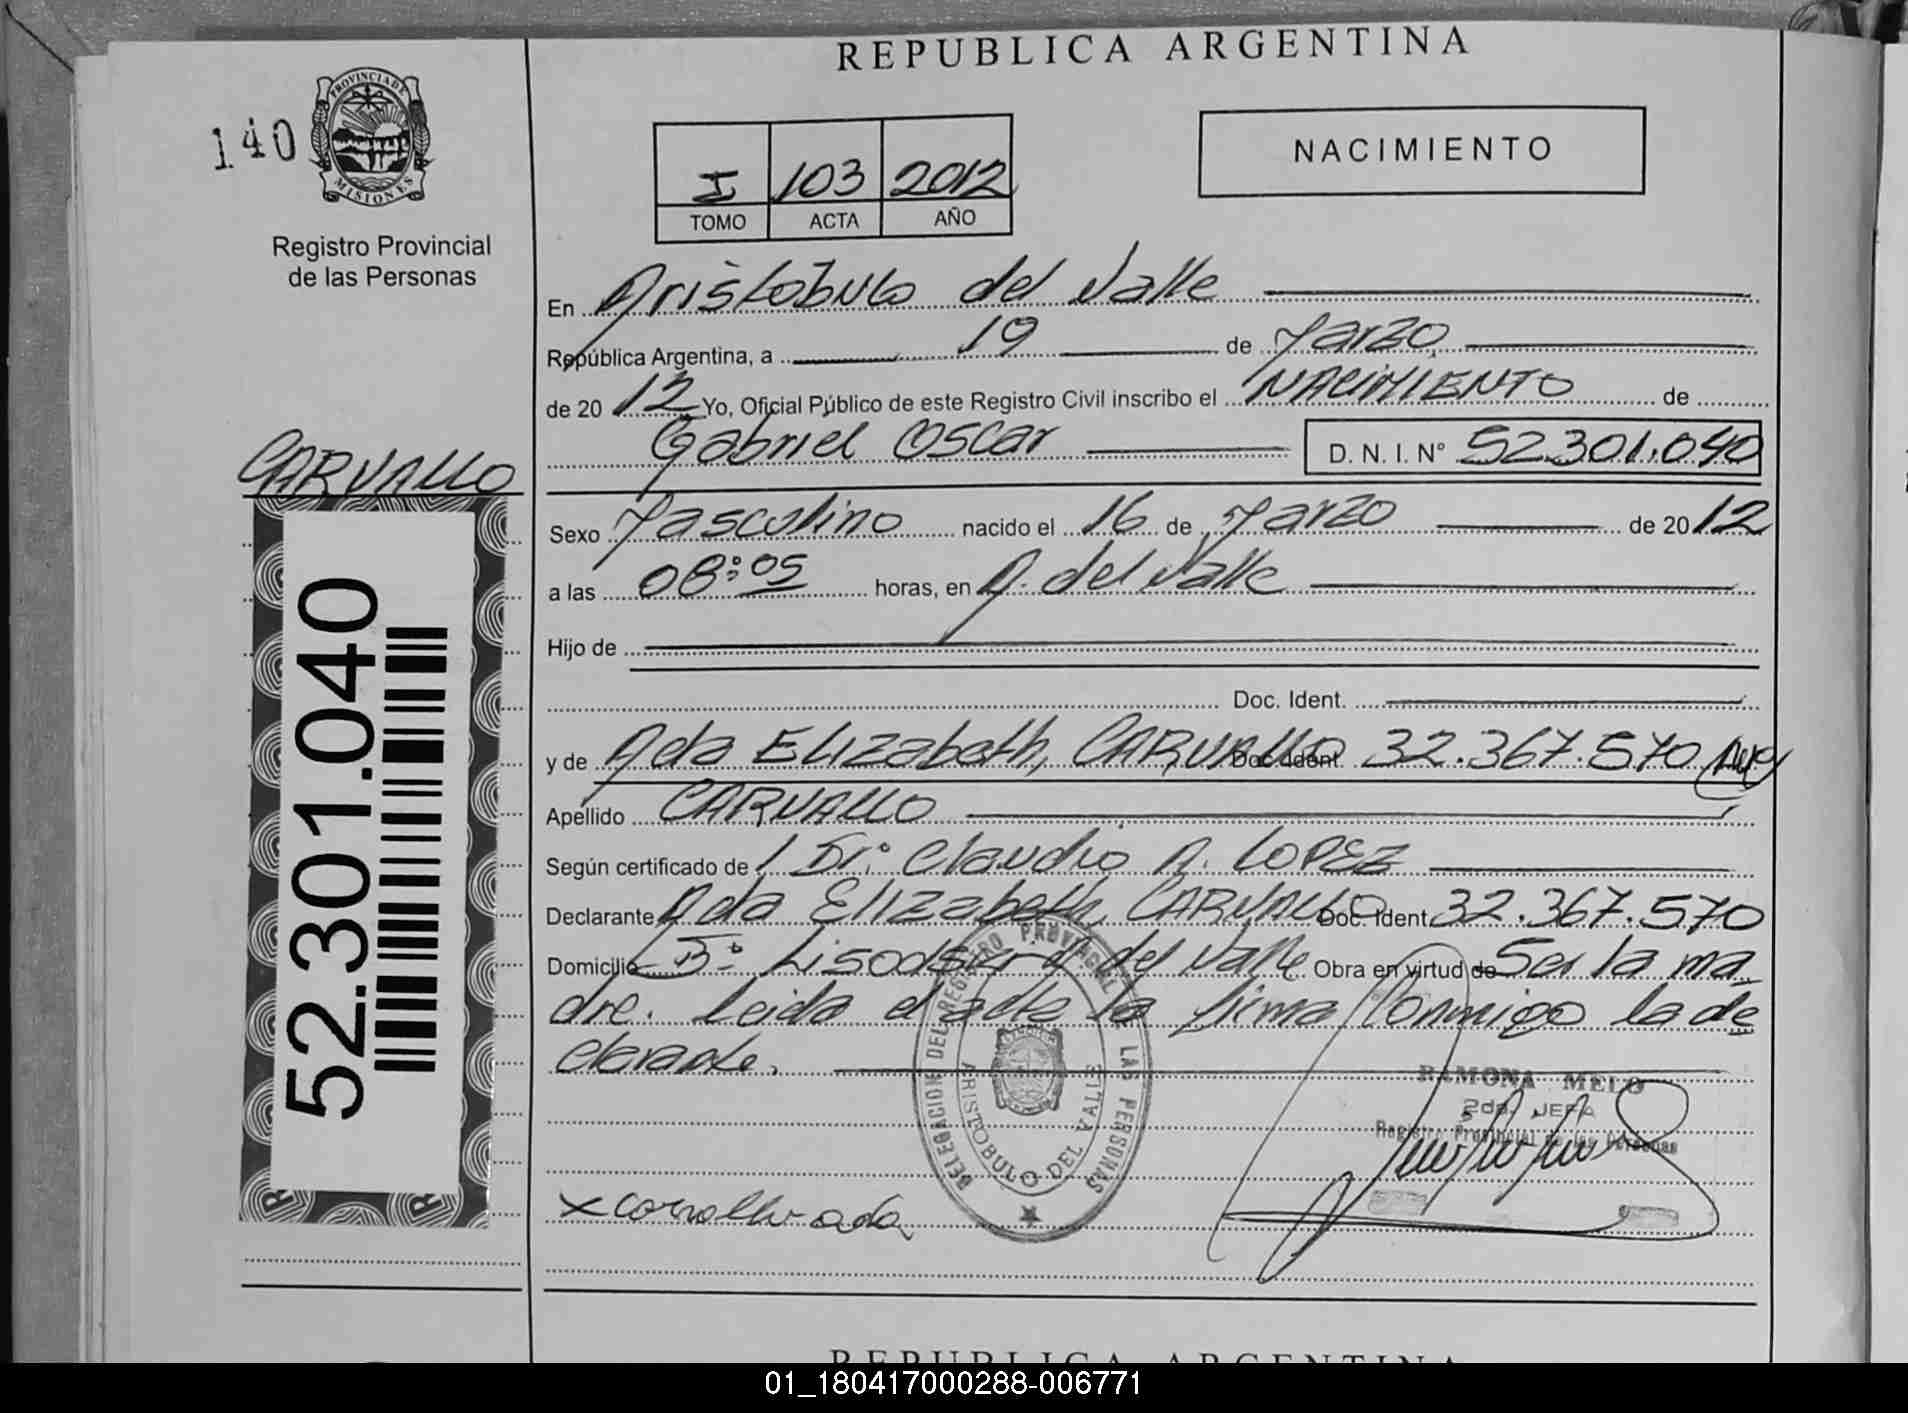 REPUBLICA ARGENTINA
140
PROVINCIA DE
MISIONES
Registro Provincial
de las Personas
I 103 2012
TOMO ACTA AÑO
NACIMIENTO
En Aristóbulo del Valle
República Argentina, a 19 de Marzo
de 2012 Yo, Oficial Público de este Registro Civil inscribo el NACIMIENTO de
Gabriel Oscar D. N. I. Nº 52.301.040
CARVALLO
52.301.040
Sexo Masculino nacido el 16 de Marzo de 2012
a las 08:05 horas, en A. del Valle
Hijo de
Doc. Ident.
y de Ada Elizabeth, CARVALLO Doc. Ident. 32.367.570
Apellido CARVALLO
Según certificado de Dr. Claudio A. LOPEZ
Declarante Ada Elizabeth, CARVALLO Doc. Ident. 32.367.570
Domicilio del Valle Obra en virtud de Ser la ma
dre. Leida el acta la firma Conmigo la de
clarante.
DELEGACION DEL REGISTRO PROVINCIAL DE LAS PERSONAS
ARISTOBULO DEL VALLE
RAMONA MELO
2da. JEFA
Registro Provincial de las Personas
REPUBLICA ARGENTINA
01_180417000288-006771